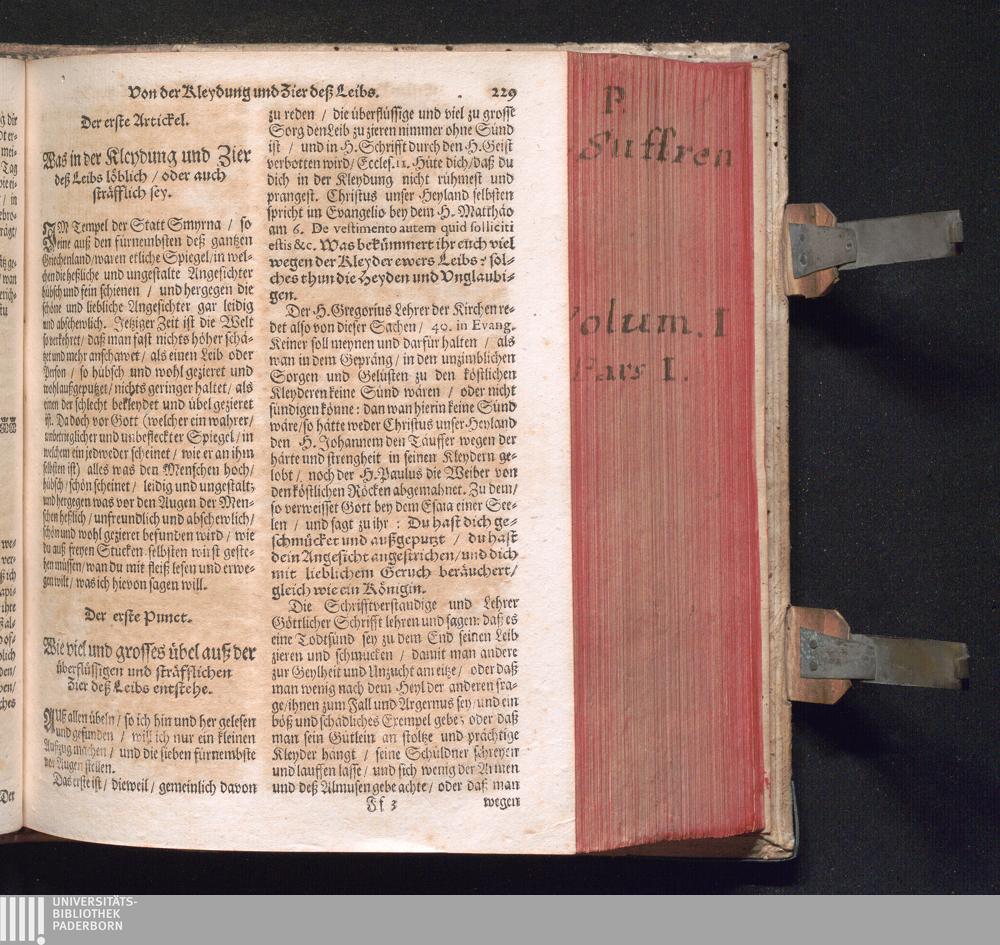 Von der Kleydung und Zier deß Leibs. 229
Der erste Artickel.
Was in der Kleydung und Zier
deß Leibs löblich / oder auch
sträfflich sey.
IM Tempel der Statt Smyrna / so
eine auß den fürnembsten deß gantzen
Griechenland / waren etliche Spiegel / in wel-
chen die heßliche und ungestalte Angesichter
hübsch und fein schienen / und hergegen die
schöne und liebliche Angesichter gar leidig
und abschewlich. Jetziger Zeit ist die Welt
so verkehret / daß man fast nichts höher schä-
tzet und mehr anschawet / als einen Leib oder
Person / so hübsch und wohl gezieret und
wohl außgeputzet / nichts geringer haltet / als
einen der schlecht bekleydet und übel gezieret
ist. Da doch vor Gott (welcher ein wahrer /
unbetrieglicher und unbefleckter Spiegel / in
welchem ein jedweder scheinet / wie er an ihm
selbsten ist) alles was den Menschen hoch /
hübsch / schön scheinet / leidig und ungestalt;
und hergegen was vor den Augen der Men-
schen heßlich / unfreundlich und abschewlich /
schön und wohl gezieret befunden wird / wie
du auß freyen Stucken selbsten wirst geste-
hen müssen / wan du mit fleiß lesen und erwe-
gen wilt / was ich hievon sagen will.
Der erste Punct.
Wie viel und grosses übel auß der
überflüssigen und sträfflichen
Zier deß Leibs entstehe.
AUß allen übeln / so ich hin und her gelesen
und gefunden / will ich nur ein kleinen
Außzug machen / und die sieben fürnembste
vor Augen stellen.
Das erste ist / dieweil / gemeinlich davon
zu reden / die überflüssige und viel zu grosse
Sorg den Leib zu zieren nimmer ohne Sünd
ist / und in H. Schrifft durch den H. Geist
verbotten wird / Eccles. 11. Hüte dich / daß du
dich in der Kleydung nicht rühmest und
prangest. Christus unser Heyland selbsten
spricht im Evangelio bey dem H. Matthäo
am 6. De vestimento autem quid solliciti
estis &c. Was bekümmert ihr euch viel
wegen der Kleyder ewers Leibs? sol-
ches thun die Heyden und Unglaubi-
gen.
Der H. Gregorius Lehrer der Kirchen re-
det also von dieser Sachen / 40. in Evang.
Keiner soll meynen und darfür halten / als
wan in dem Gepräng / in den unzimblichen
Sorgen und Gelüsten zu den köstlichen
Kleyderen keine Sünd wären / oder nicht
sündigen könne: dan wan hierin keine Sünd
wäre / so hätte weder Christus unser Heyland
den H. Johannem den Täuffer wegen der
härte und strengheit in seinen Kleydern ge-
lobt / noch der H. Paulus die Weiber von
den köstlichen Röcken abgemahnet. Zu dem /
so verweisset Gott bey dem Esaia einer See-
len / und sagt zu ihr : Du hast dich ge-
schmücket und außgeputzt / du hast
dein Angesicht angestrichen / und dich
mit lieblichem Geruch beräuchert /
gleich wie ein Königin.
Die Schrifftverständige und Lehrer
Göttlicher Schrifft lehren und sagen: daß es
eine Todsünd sey zu dem End seinen Leib
zieren und schmücken / damit man andere
zur Geylheit und Unzucht anreitze / oder daß
man wenig nach dem Heyl der anderen fra-
ge / ihnen zum Fall und Argernus sey / und ein
böß und schädliches Exempel gebe; oder daß
man sein Gütlein an stoltze und prächtige
Kleyder hangt / seine Schüldner schreyen
und lauffen lasse / und sich wenig der Armen
und deß Almusen gebe achte / oder daß man
Ff 3 wegen
P.
Suffren
Volum. I
Pars I.
UNIVERSITÄTS-
BIBLIOTHEK
PADERBORN